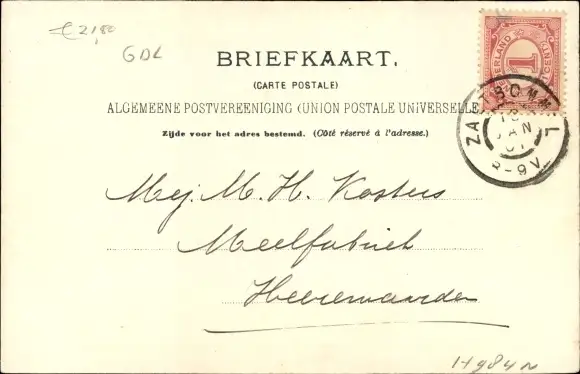 € 2,80
GDL
BRIEFKAART.
(CARTE POSTALE)
ALGEMEENE POSTVEREENIGING (UNION POSTALE UNIVERSELLE)
Zijde voor het adres bestemd. (Côté réservé à l'adresse.)
NEDERLAND
1
ZALTBOMMEL
18
JAN
01
8-9V
Mej. M. H. Kosters
Meelfabriek
Heerewaarden
H984N